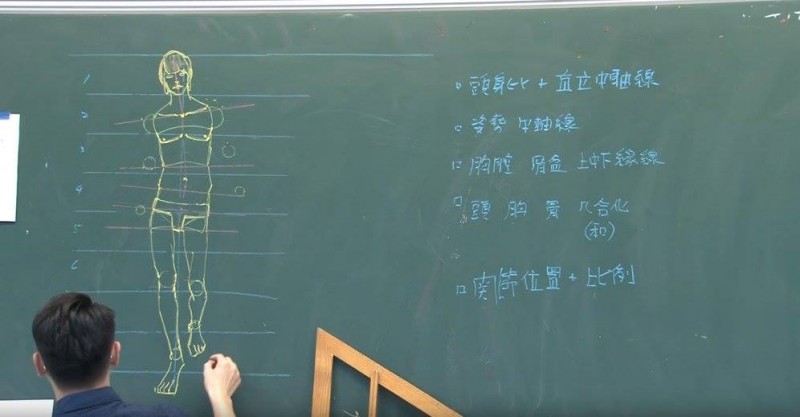 1
2
3
4
5
6
頭身比 + 直立中軸線
姿勢 中軸線
胸腔 骨盆 上中下緣線
頭 胸 寬 几合化
(和)
関節位置 + 比例